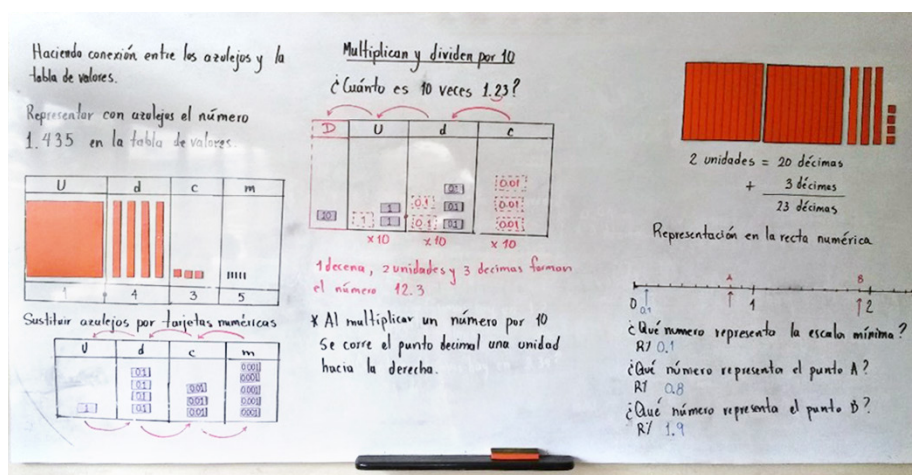 Haciendo conexión entre los azulejos y la
tabla de valores.
Representar con azulejos el número
1.435 en la tabla de valores.
U d c m
1 4 3 5
Sustituir azulejos por tarjetas numéricas
U d c m
0.001
0.1 0.001
0.1 0.01 0.001
0.1 0.01 0.001
1 0.1 0.01 0.001
Multiplican y dividen por 10
¿Cuánto es 10 veces 1.23?
D U d c
0.1 0.01
1 0.1 0.1 0.01
10 1 1 0.1 0.1 0.01
x 10 x 10 x 10
1 decena, 2 unidades y 3 decimas forman
el número 12.3
* Al multiplicar un número por 10
se corre el punto decimal una unidad
hacia la derecha.
2 unidades = 20 décimas
+ 3 décimas
23 décimas
Representación en la recta numérica
A B
0 1 2
0.1
¿Qué numero representa la escala mínima?
R/ 0.1
¿Qué número representa el punto A?
R/ 0.8
¿Qué número representa el punto B?
R/ 1.9